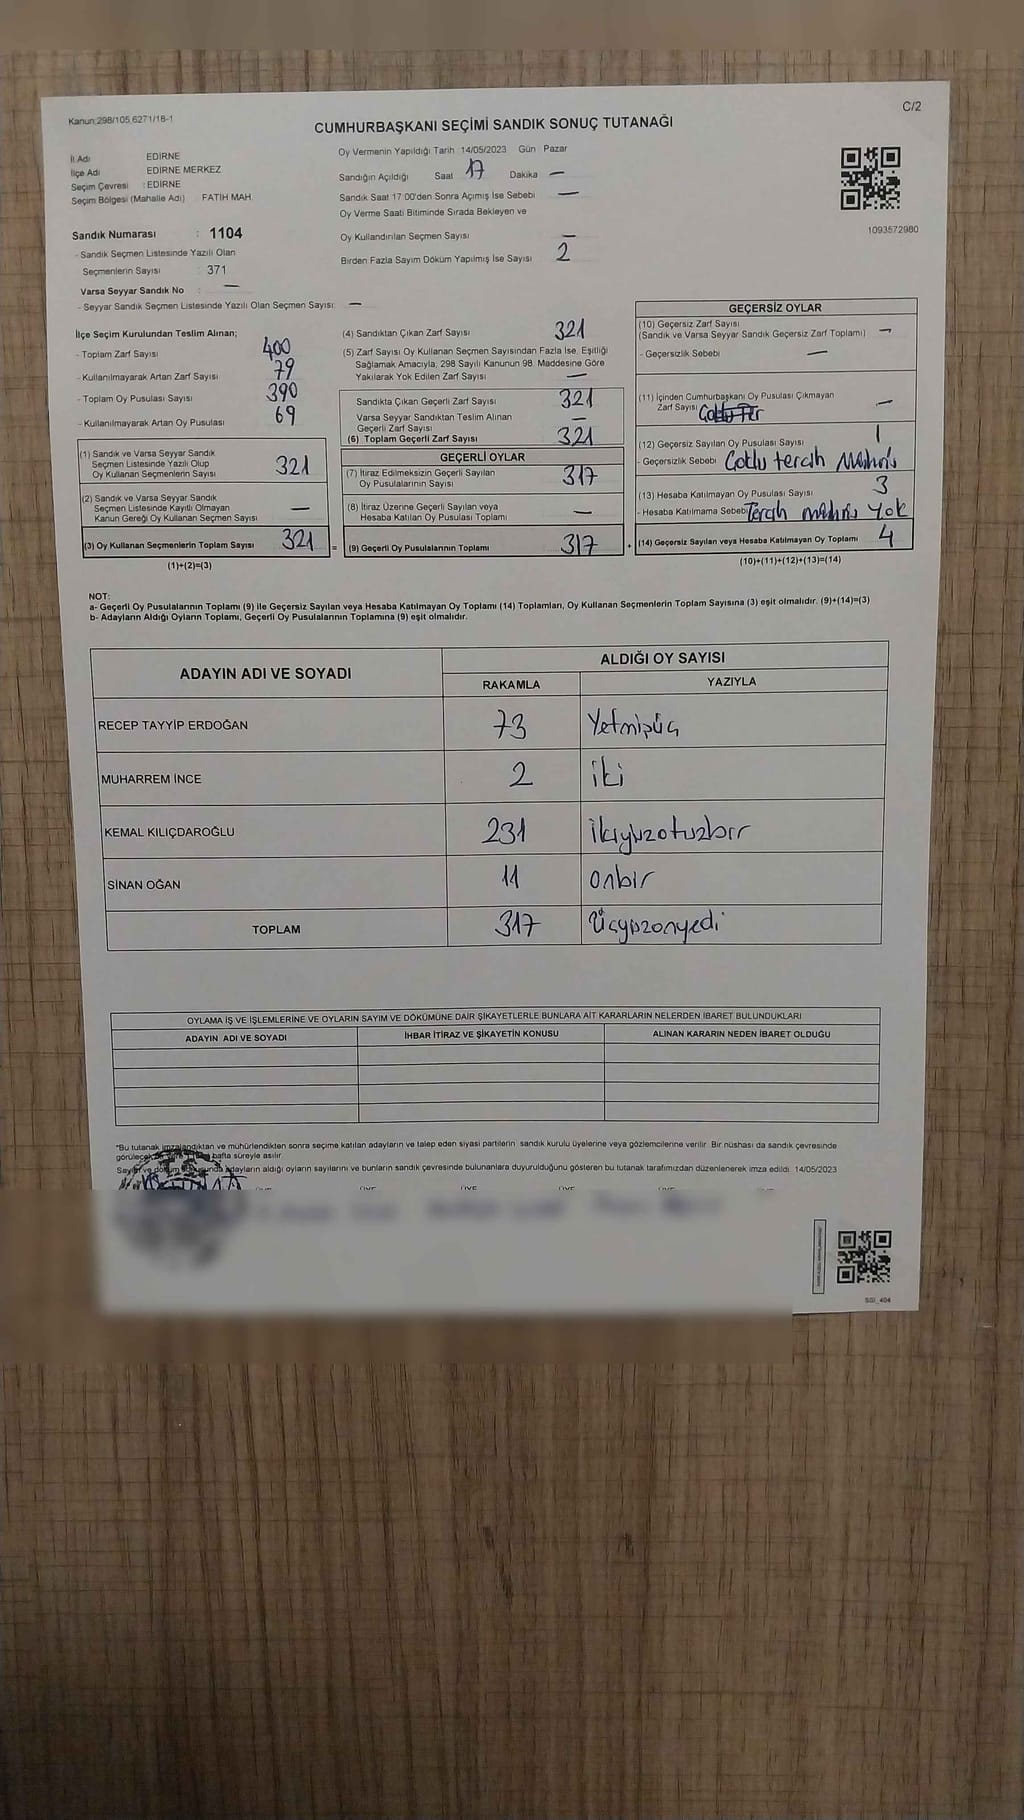 Kanun:298/105,6271/18-1
C/2
CUMHURBAŞKANI SEÇİMİ SANDIK SONUÇ TUTANAĞI
İl Adı EDİRNE
İlçe Adı EDİRNE MERKEZ
Seçim Çevresi : EDİRNE
Seçim Bölgesi (Mahalle Adı) FATİH MAH.
Sandık Numarası : 1104
- Sandık Seçmen Listesinde Yazılı Olan
Seçmenlerin Sayısı : 371
Varsa Seyyar Sandık No : —
- Seyyar Sandık Seçmen Listesinde Yazılı Olan Seçmen Sayısı: —
Oy Vermenin Yapıldığı Tarih : 14/05/2023 Gün : Pazar
Sandığın Açıldığı Saat 17 Dakika —
Sandık Saat 17:00'den Sonra Açımış İse Sebebi —
Oy Verme Saati Bitiminde Sırada Bekleyen ve
Oy Kullandırılan Seçmen Sayısı —
Birden Fazla Sayım Döküm Yapılmış İse Sayısı 2
1093572980
İlçe Seçim Kurulundan Teslim Alınan;
- Toplam Zarf Sayısı 400
- Kullanılmayarak Artan Zarf Sayısı 79
- Toplam Oy Pusulası Sayısı 390
- Kullanılmayarak Artan Oy Pusulası 69
(1) Sandık ve Varsa Seyyar Sandık
Seçmen Listesinde Yazılı Olup
Oy Kullanan Seçmenlerin Sayısı 321
(2) Sandık ve Varsa Seyyar Sandık
Seçmen Listesinde Kayıtlı Olmayan
Kanun Gereği Oy Kullanan Seçmen Sayısı —
(3) Oy Kullanan Seçmenlerin Toplam Sayısı 321
(1)+(2)=(3)
=
(4) Sandıktan Çıkan Zarf Sayısı 321
(5) Zarf Sayısı Oy Kullanan Seçmen Sayısından Fazla İse, Eşitliği
Sağlamak Amacıyla, 298 Sayılı Kanunun 98. Maddesine Göre
Yakılarak Yok Edilen Zarf Sayısı —
Sandıkta Çıkan Geçerli Zarf Sayısı 321
Varsa Seyyar Sandıktan Teslim Alınan
Geçerli Zarf Sayısı —
(6) Toplam Geçerli Zarf Sayısı 321
GEÇERLİ OYLAR
(7) İtiraz Edilmeksizin Geçerli Sayılan
Oy Pusulalarının Sayısı 317
(8) İtiraz Üzerine Geçerli Sayılan veya
Hesaba Katılan Oy Pusulası Toplamı —
(9) Geçerli Oy Pusulalarının Toplamı 317
+
GEÇERSİZ OYLAR
(10) Geçersiz Zarf Sayısı
(Sandık ve Varsa Seyyar Sandık Geçersiz Zarf Toplamı) —
- Geçersizlik Sebebi —
(11) İçinden Cumhurbaşkanı Oy Pusulası Çıkmayan
Zarf Sayısı —
(12) Geçersiz Sayılan Oy Pusulası Sayısı 1
- Geçersizlik Sebebi Çoklu tercih Mührü
(13) Hesaba Katılmayan Oy Pusulası Sayısı 3
- Hesaba Katılmama Sebebi Tercih mührü Yok
(14) Geçersiz Sayılan veya Hesaba Katılmayan Oy Toplamı 4
(10)+(11)+(12)+(13)=(14)
NOT:
a- Geçerli Oy Pusulalarının Toplamı (9) ile Geçersiz Sayılan veya Hesaba Katılmayan Oy Toplamı (14) Toplamları, Oy Kullanan Seçmenlerin Toplam Sayısına (3) eşit olmalıdır. (9)+(14)=(3)
b- Adayların Aldığı Oyların Toplamı, Geçerli Oy Pusulalarının Toplamına (9) eşit olmalıdır.
ADAYIN ADI VE SOYADI ALDIĞI OY SAYISI
RAKAMLA YAZIYLA
RECEP TAYYİP ERDOĞAN 73 Yetmişüç
MUHARREM İNCE 2 iki
KEMAL KILIÇDAROĞLU 231 ikiyüzotuzbir
SİNAN OĞAN 11 onbir
TOPLAM 317 Üçyüzonyedi
OYLAMA İŞ VE İŞLEMLERİNE VE OYLARIN SAYIM VE DÖKÜMÜNE DAİR ŞİKAYETLERLE BUNLARA AİT KARARLARIN NELERDEN İBARET BULUNDUKLARI
ADAYIN ADI VE SOYADI İHBAR İTİRAZ VE ŞİKAYETİN KONUSU ALINAN KARARIN NEDEN İBARET OLDUĞU
*Bu tutanak imzalandıktan ve mühürlendikten sonra seçime katılan adayların ve talep eden siyasi partilerin sandık kurulu üyelerine veya gözlemcilerine verilir. Bir nüshası da sandık çevresinde
hafta süreyle asılır.
adayların aldığı oyların sayılarını ve bunların sandık çevresinde bulunanlara duyurulduğunu gösteren bu tutanak tarafımızdan düzenlenerek imza edildi. 14/05/2023
SGI_404